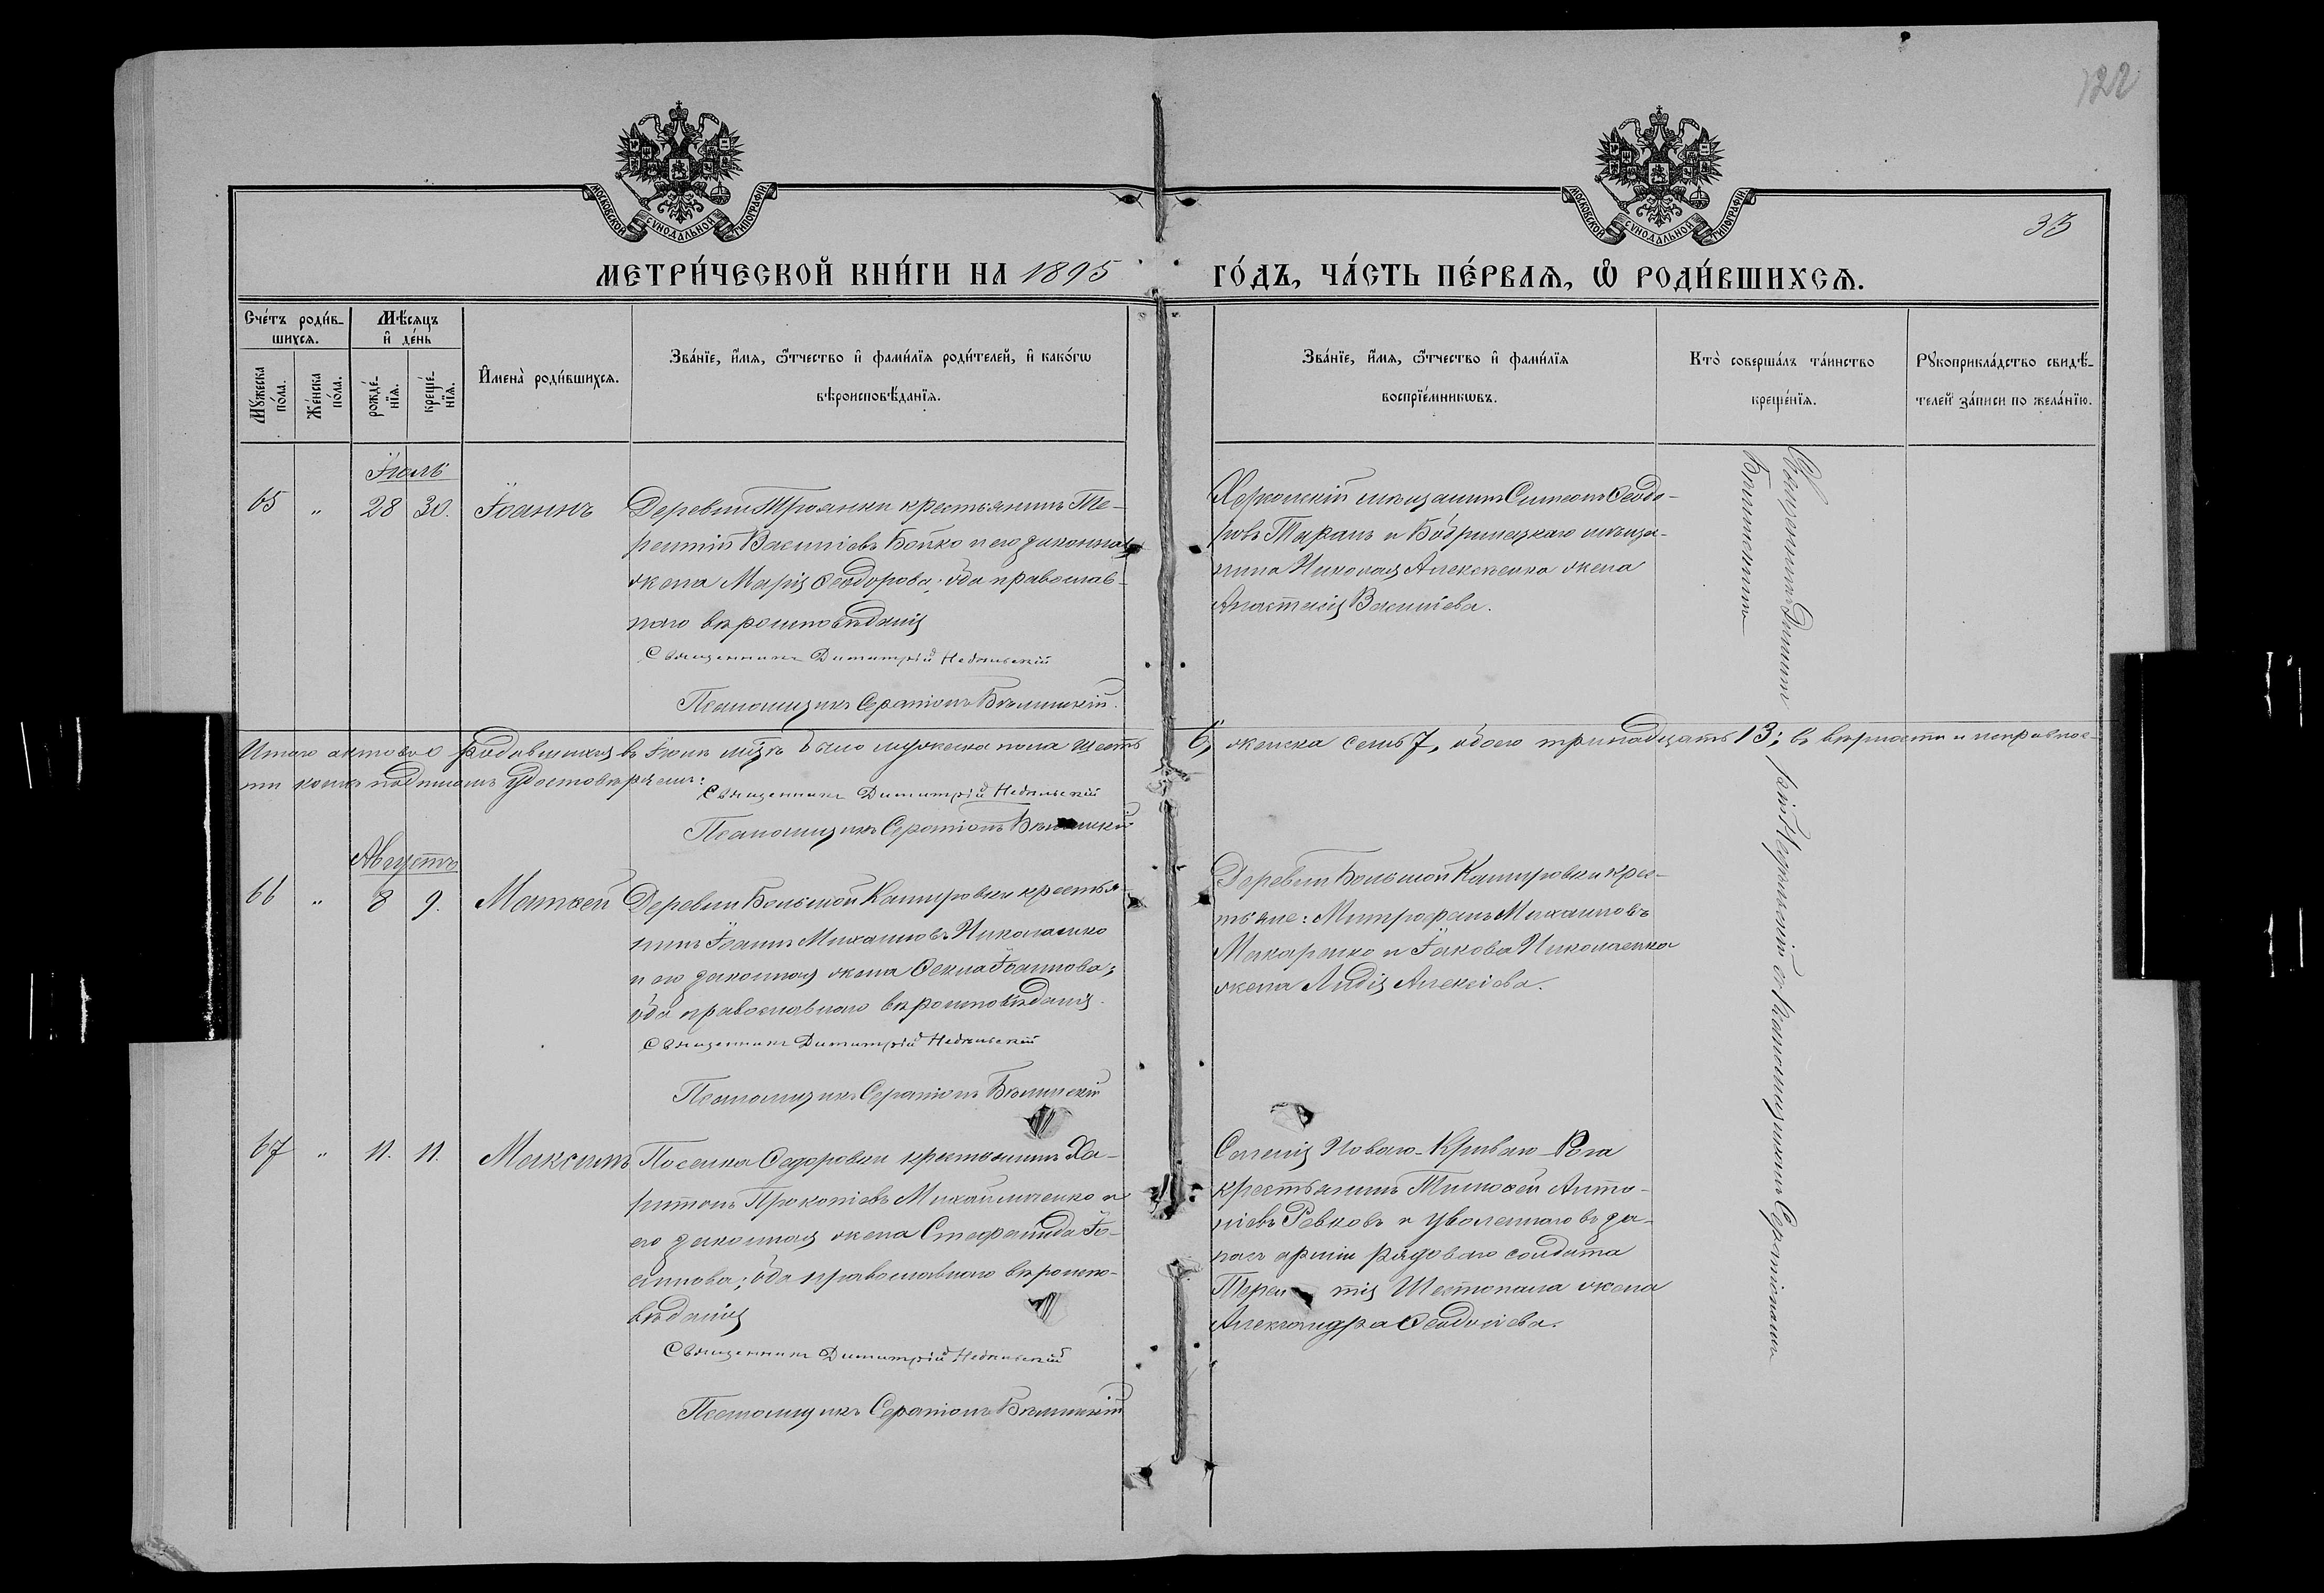 122
МОСКОВСКОЙ СУНОДАЛЬНОЙ ТИПОГРАФІИ
МОСКОВСКОЙ СУНОДАЛЬНОЙ ТИПОГРАФІИ
33
МЕТРИ́ЧЕСКОЙ КНИ́ГИ НА 1895 ГО́ДЪ, ЧА́СТЬ ПЕ́РВАѦ, Ѡ РОДИ́ВШИХСѦ.
Сче́тъ роди́в-
шихсѧ.
Мꙋ́жеска по́ла.
Же́нска по́ла.
Мѣ́сѧцъ
и҆ де́нь
рожде́-
нїѧ.
креще́-
нїѧ.
И҆мена̀ роди́вшихсѧ.
Зва́нїе, и҆́мѧ, ѻ҆́тчество и҆ фами́лїѧ роди́телей, и҆ како́гѡ
вѣроисповѣ́данїѧ.
Зва́нїе, и҆́мѧ, ѻ҆́тчество и҆ фами́лїѧ
воспрїе́мникѡвъ.
Кто̀ соверша́лъ та́инство
креще́нїѧ.
Рꙋкоприкла́дство свидѣ́-
телей за́писи по жела́нїю.
Іюль
65 " 28 30. Іоаннъ
Деревни Троянки крестьянинъ Те-
рентій Василіевъ Бойко и его законная
жена Марія Ѳеодорова; оба православ-
наго вѣроисповѣданія
Священникъ Димитрій Недѣльскій
Псаломщикъ Серапіонъ Бѣлинскій.
Херсонскій мѣщанинъ Симеонъ Ѳеодо-
ровъ Таранъ и Бобринецкаго мѣща-
нина Николая Алексеенка жена
Анастасія Василіева.
Священникъ Димит рій Недѣльскій съ псаломщикомъ Серапіономъ
Бѣлинскимъ
Итого актовъ о родившихся въ Іюлѣ м҃цѣ было мужеска пола шесть 6, женска семь 7, обоего тринадцать 13; въ вѣрности и исправнос-
ти коихъ подписомъ удостовѣряемъ:
Священникъ Димитрій Недѣльскій
Псаломщикъ Серапіонъ Бѣлинскій
Августъ
66 " 8 9. Матѳей
Деревни Большой Кашировки крестья-
нинъ Іоаннъ Михаиловъ Николаенко
и его законная жена Ѳекла Іоаннова;
оба православнаго вѣроисповѣданія.
Священникъ Димитрій Недѣльскій
Псаломщикъ Серапіонъ Бѣлинскій
Деревни Большой Кашировки крес-
тьяне: Митрофанъ Михаиловъ
Макаренко и Іакова Николаенка
жена Лидія Алексіева.
67 " 11. 11. Максимъ
Поселка Ѳедоровки крестьянинъ Ха-
ритонъ Прокопіевъ Михайличенко и
его законная жена Стефанида Іо-
аннова; оба православнаго вѣроиспо-
вѣданія
Священникъ Димитрій Недѣльскій
Псаломщикъ Серапіонъ Бѣлинскій
Селенія Новаго-Криваго-Рога
крестьянинъ Тимоѳей Анто-
ніевъ Ревковъ и уволеннаго въ за-
пасъ арміи рядоваго солдата
Терен тія Шестопала жена
Александра Ѳеодосіева.